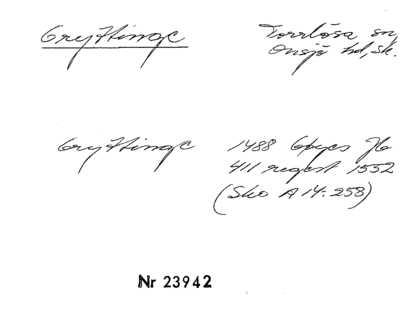 Gryttinge
Torrlösa sn,
Onsjö hd, Sk.
Gryttinge
1488 Gyes Jb
411 regest 1552
(Sko A 14:258)
Nr 23942